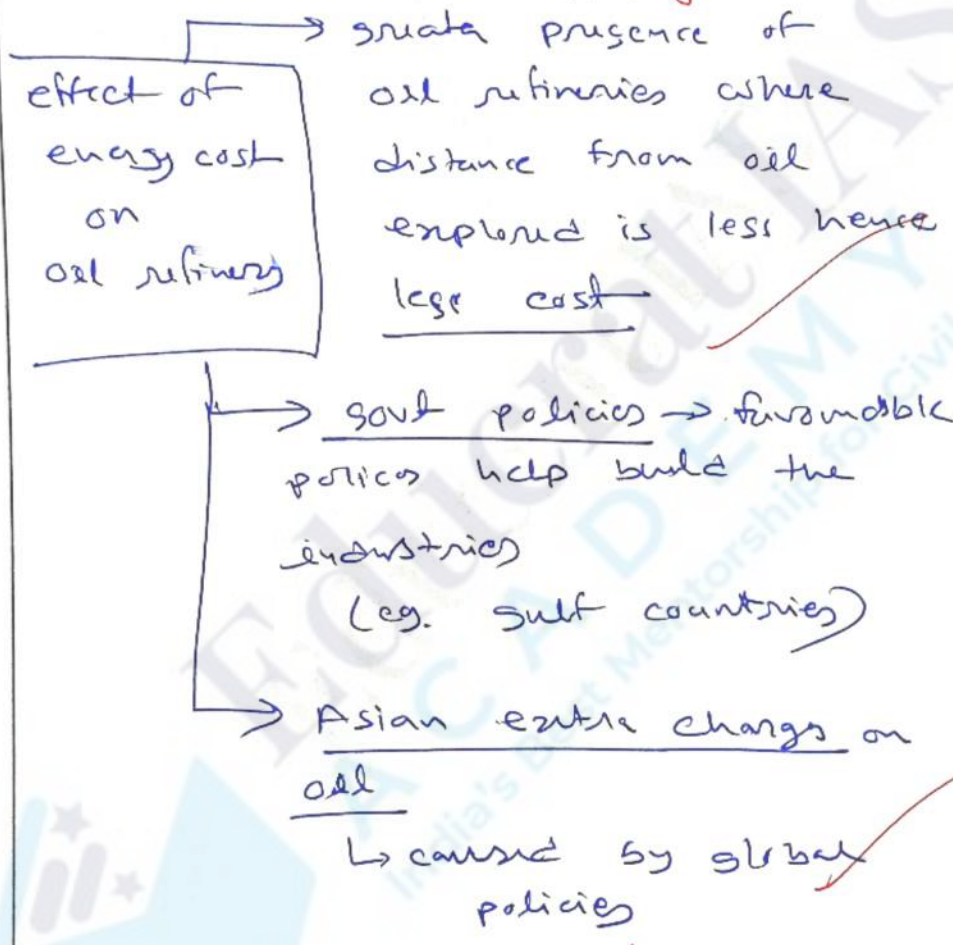 effect of
energy cost
on
oil refinery
→ greater presence of
oil refineries where
distance from oil
explored is less hence
less cost
→ govt policies → favourable
policies help build the
industries
(eg. gulf countries)
→ Asian extra charges on
oil
↳ caused by global
policies
Educrat IAS
ACADEMY
India's Best Mentorship for Civil